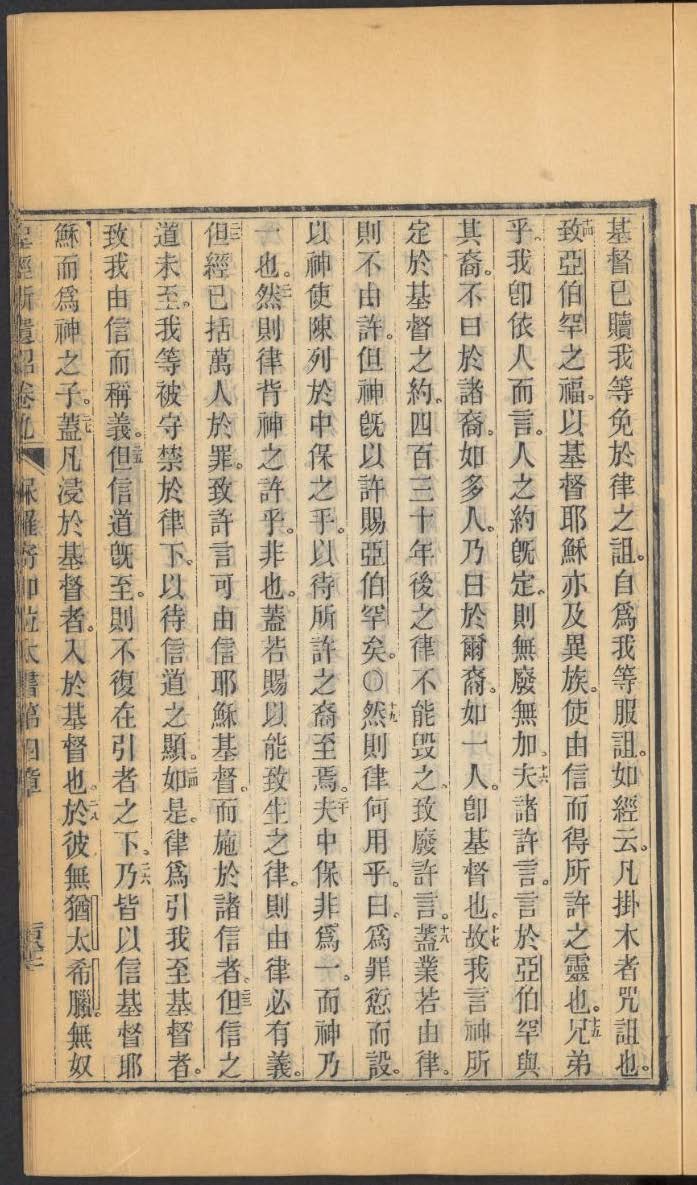 基督已贖我等免於律之詛。自爲我等服詛。如經云。凡掛木者咒詛也。
十四致亞伯罕之福。以基督耶穌亦及異族。使由信而得所許之靈也。十五兄弟
乎、我卽依人而言。人之約旣定。則無廢無加、十六夫諸許言。言於亞伯罕與
其裔。不曰於諸裔。如多人。乃曰於爾裔。如一人。卽基督也。十七故我言神所
定於基督之約。四百三十年後之律不能毀之、致廢許言。十八蓋業若由律。
則不由許。但神旣以許賜亞伯罕矣。〇十九然則律何用乎。曰。爲罪愆而設。
以神使陳列於中保之手。以待所許之裔至焉。二十夫中保非爲一。而神乃
一也。二一然則律背神之許乎。非也。蓋若賜以能致生之律。則由律必有義。
二二但經已括萬人於罪。致許言可由信耶穌基督。而施於諸信者。二三但信之
道未至。我等被守禁於律下。以待信道之顯。二四如是。律爲引我至基督者。
致我由信而稱義。二五但信道旣至。則不復在引者之下、二六乃皆以信基督耶
穌而爲神之子。二七蓋凡浸於基督者。入於基督也。二八於彼無猶太希臘。無奴
聖經新遺詔卷九 保羅寄加拉太書第四章